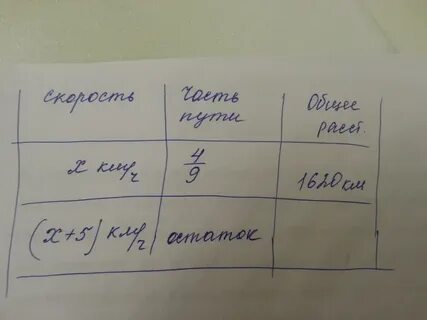 скорость часть пути Общее расст.
x км/ч 4/9 1620 км
(x+5) км/ч остаток